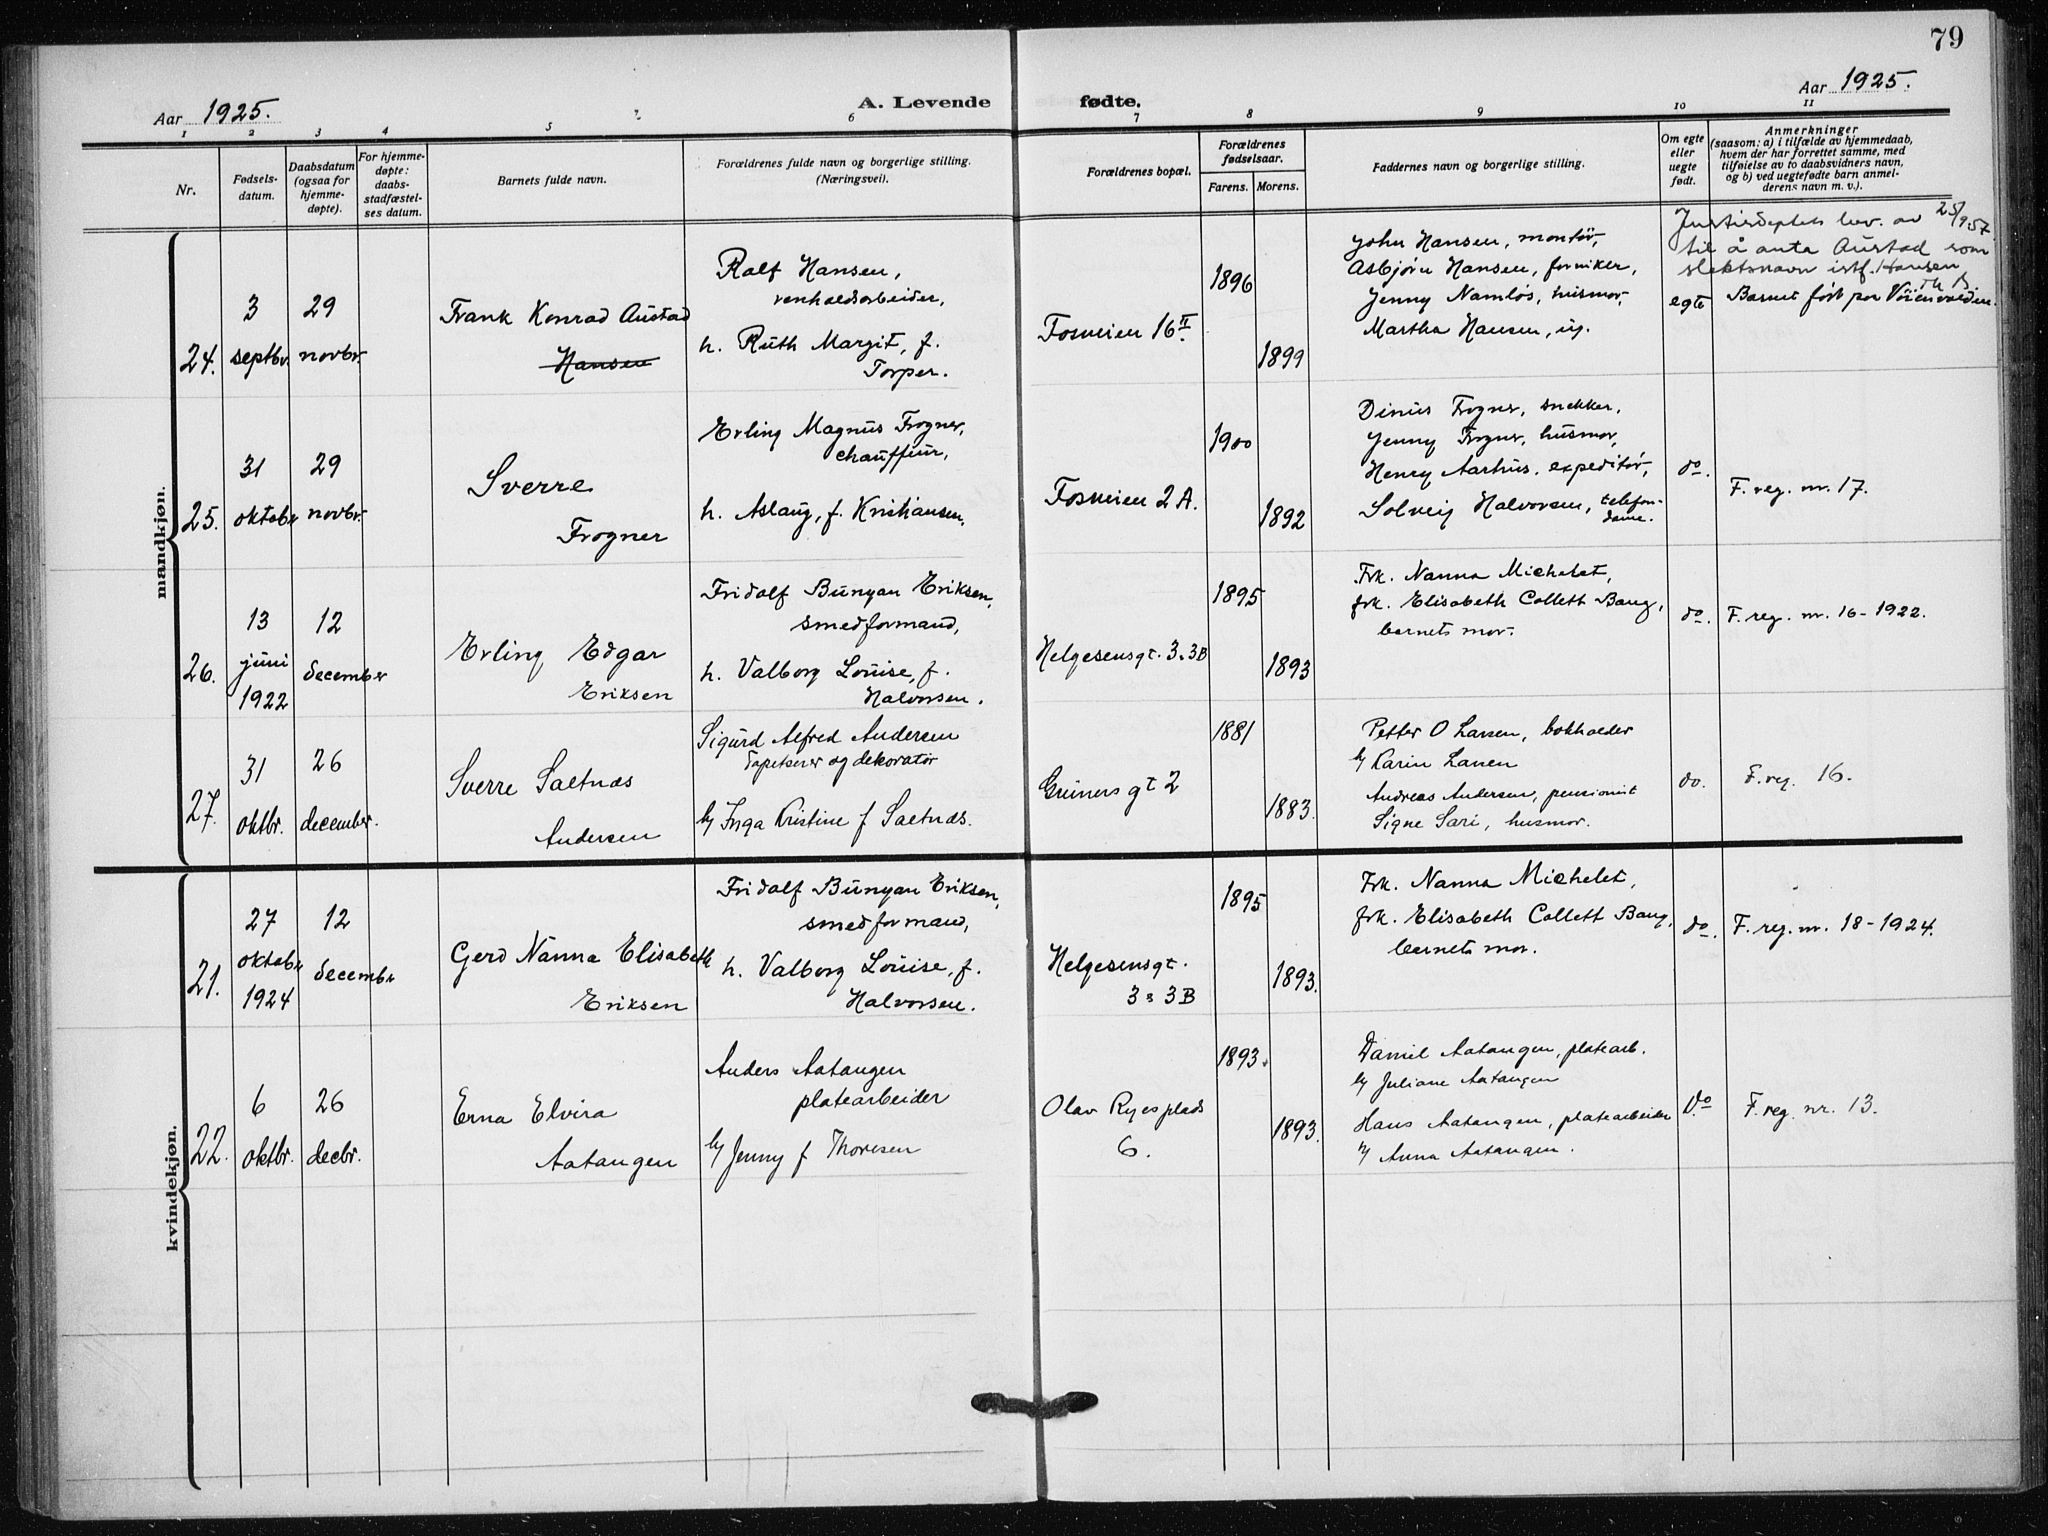 79
Aar 1925.
A. Levende fødte.
Aar 1925.
1 2 3 4 5 6 7 8 9 10 11
Nr.
Fødsels-
datum.
Daabsdatum
(ogsaa for
hjemme-
døpte).
For hjemme-
døpte:
daabs-
stadfæstel-
ses datum.
Barnets fulde navn.
Forældrenes fulde navn og borgerlige stilling.
(Næringsvei).
Forældrenes bopæl.
Forældrenes
fødselsaar.
Farens. Morens.
Faddernes navn og borgerlige stilling.
Om egte
eller
uegte
født.
Anmerkninger
(saasom: a) i tilfælde av hjemmedaab,
hvem der har forrettet samme, med
tilføielse av to daabsvidners navn,
og b) ved uegtefødte barn anmel-
derens navn m. v.).
mandkjøn.
24.
3
septbr.
29
novbr.
Frank Konrad Austad
Hansen
Ralf Hansen,
renholdsarbeider,
h. Ruth Margit, f.
Torper.
Fosveien 16 II
1896
1899
John Hansen, montør,
Asbjørn Hansen, forniker,
Jenny Namløs, husmor,
Martha Hansen, ug.
egte
Justisdeptets bev. av 25/9 57
til å anta Austad som
slektsnavn istf. Hansen
Th B.
Barnet født paa Voienvolden.
25.
31
oktobr
29
novbr.
Sverre
Frogner
Erling Magnus Frogner,
chauffeur,
h. Aslaug, f. Kristiansen,
Fosveien 2 A.
1900
1892
Dinus Frogner, snekker,
Jenny Frogner, husmor,
Henry Aarhus, expeditør,
Solveig Halvorsen, telefon-
dame.
do.
F. reg. nr. 17.
26.
13
juni
1922
12
december
Erling Edgar
Eriksen
Fridolf Bunyan Eriksen,
smedformand,
h. Valborg Louise, f.
Halvorsen.
Helgesensgt. 3.3B
1895
1893
Frk. Nanna Michelet,
frk. Elisabeth Collett Bang,
barnets mor.
do.
F. reg. nr. 16 - 1922.
27.
31
oktbr.
26
december.
Sverre Saltnæs
Andersen
Sigurd Alfred Andersen
Tapetserer og dekoratør
h/ Inga Kristine f Saltnæs.
Greiners gt 2
1881
1883.
Petter O Larsen, bokholder
h/ Karin Larsen
Andreas Andersen, pensionist
Signe Sari, husmor.
do.
F. reg. 16.
kvindekjøn.
21.
27
oktober
1924
12
december
Gerd Nanna Elisabeth
Eriksen
Fridolf Bunyan Eriksen,
smedformand,
h. Valborg Louise, f.
Halvorsen.
Helgesensgt.
3 3B
1895
1893.
Frk. Nanna Michelet,
frk. Elisabeth Collett Bang,
barnets mor.
do.
F. reg. nr. 18 - 1924.
22.
6
oktbr.
26
decbr.
Erna Elvira
Aatangen
Anders Aatangen
platearbeider
h/ Jenny f Thoresen
Olav Ryes plads
6.
1893.
1893.
Daniel Aatangen, platearb.
h/ Juliane Aatangen
Hans Aatangen, platearbeider
h/ Anna Aatangen.
Do
F. reg. nr. 13.